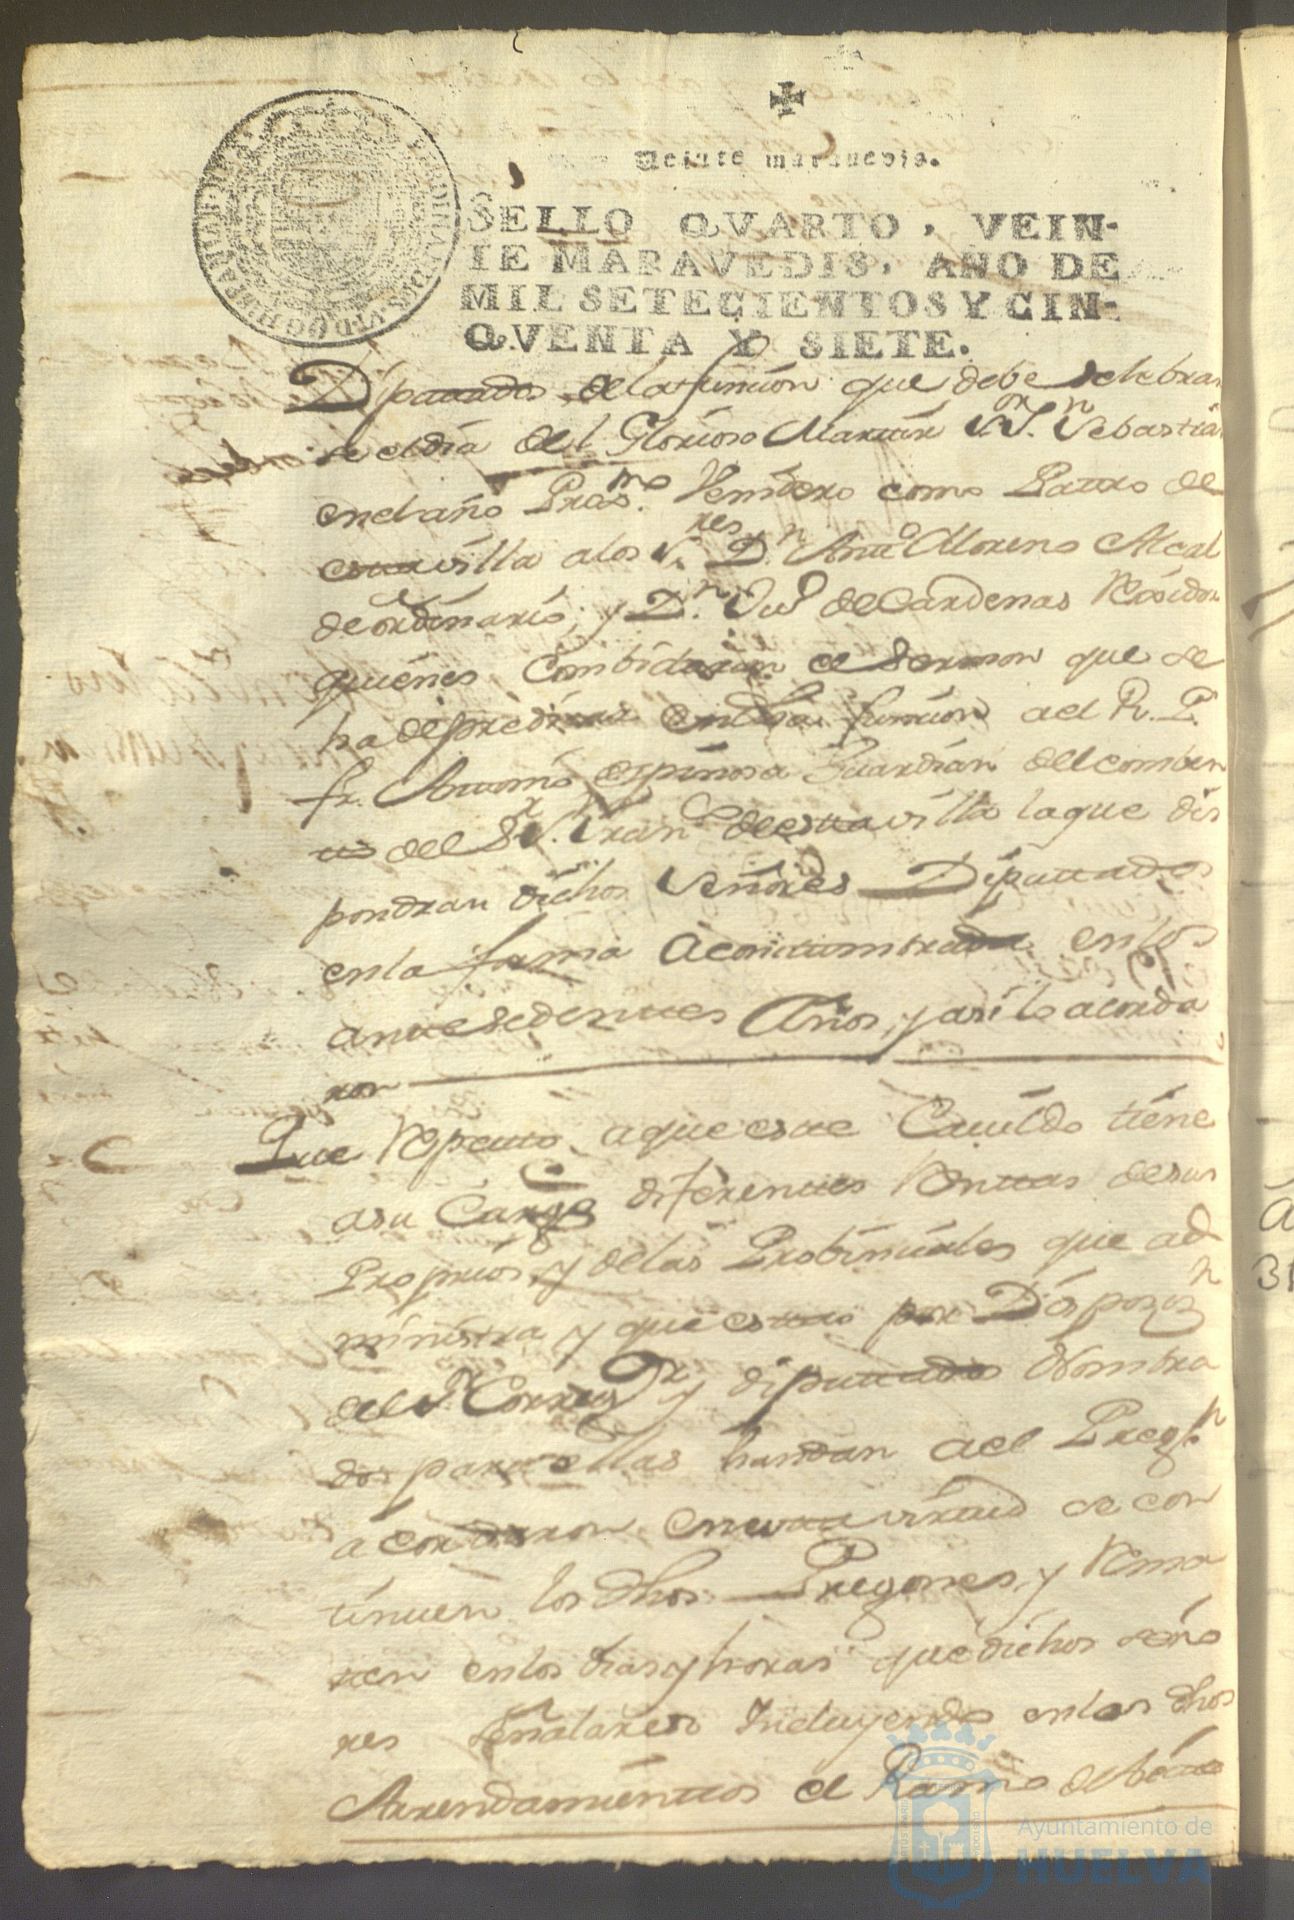 ✠
Veinte maravedis.
SELLO QVARTO, VEIN-
TE MARAVEDIS, AÑO DE
MIL SETECIENTOS Y CIN-
QVENTA Y SIETE.
Diputados de la función que debe selebrar
se el día del Glorioso Martir Sor. Sn. Sebastián
en el año Proxmo. Venidero como Patro de
esta villa a los Sres. Dn. Anto. Moreno Alcal
de ordinario, y Dn. Jub de Cardenas Rexidor
quienes Combidaran el Sermon que se
ha de predicar en dha. función a el R. P.
fr. Antonio espinosa Guardian del comben
to del Sr. Sn. Franco. de esta villa la que dis
pondran dichos Señores Diputados
en la forma Acostumbrada en los
antesedentes Años, y asi lo acorda
ron
Que Respecto a que este Cavildo tiene
a su Cargo diferentes Rentas de sus
Propios, y de las Probinciales que ad
ministra, y que estas por Disposon
del Sr. Corregr. y diputados Nombra
dos para ellas handan a el Pregn.
acordaron en esta virtud se con
tinuen los dhos. Pregones, y Rema
ten en los dias y horas que dichos seño
res señalaren Incluyendo en los dhos
Arrendamientos el Ramo de
Ayuntamiento de
HUELVA